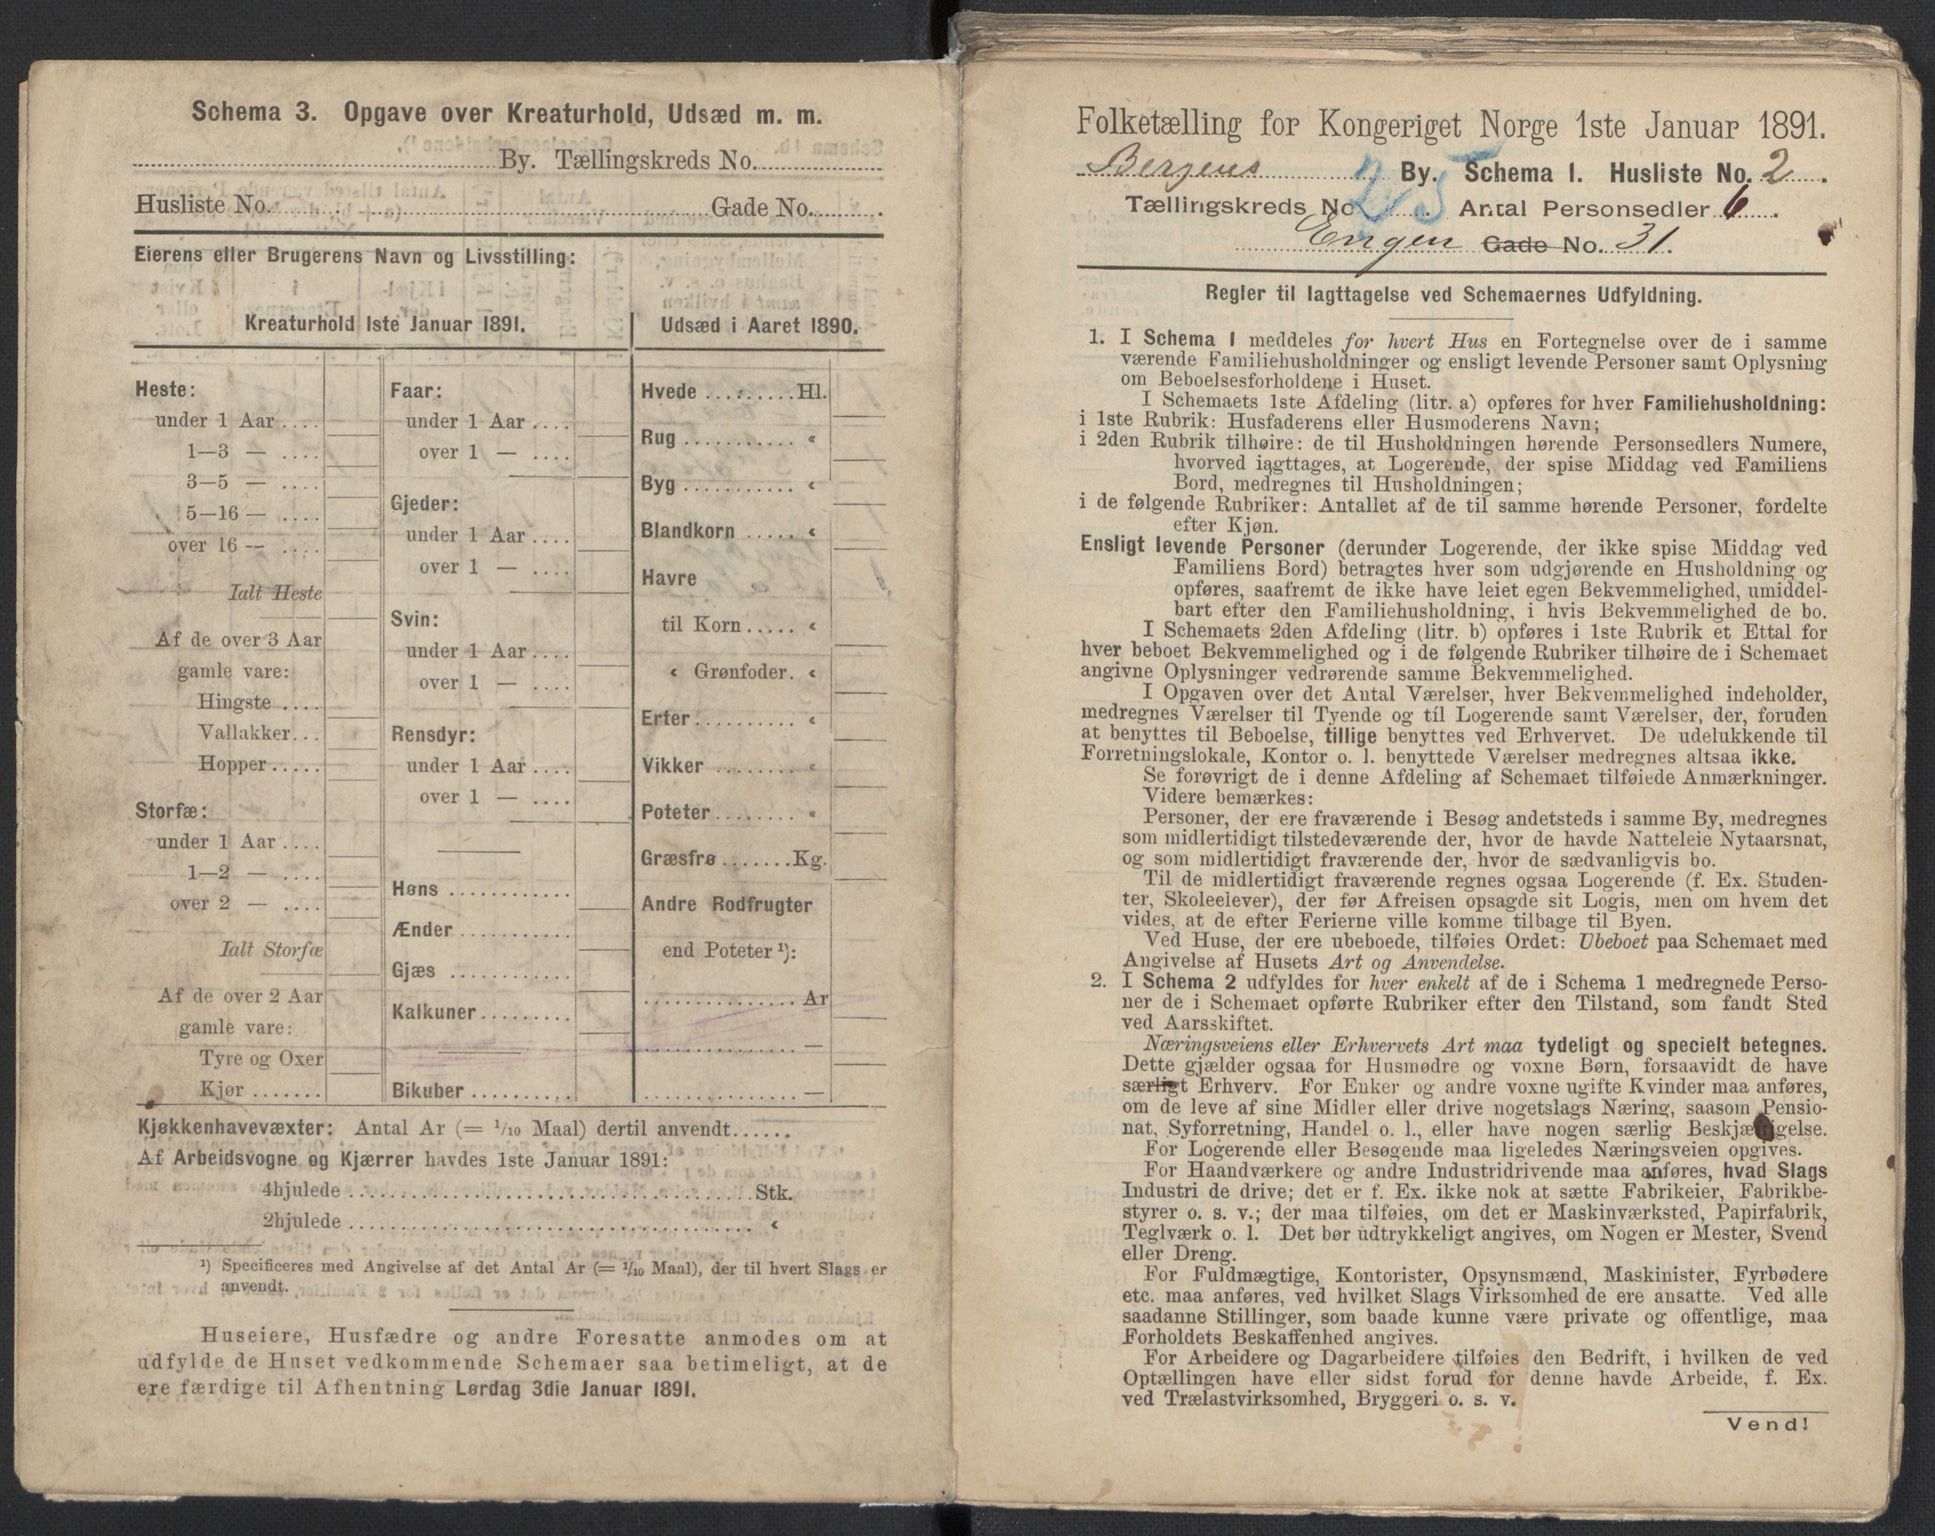 Schema 3. Opgave over Kreaturhold, Udsæd m. m.
By. Tællingskreds No.
Husliste No. Gade No.
Eierens eller Brugerens Navn og Livsstilling:
Kreaturhold 1ste Januar 1891.
Heste:
under 1 Aar
1—3 —
3—5 —
5—16 —
over 16 —
Ialt Heste
Af de over 3 Aar
gamle vare:
Hingste
Vallakker
Hopper
Storfæ:
under 1 Aar
1—2 —
over 2 —
Ialt Storfæ
Af de over 2 Aar
gamle vare:
Tyre og Oxer
Kjør
Faar:
under 1 Aar
over 1 —
Gjeder:
under 1 Aar
over 1 —
Svin:
under 1 Aar
over 1 —
Rensdyr:
under 1 Aar
over 1 —
Høns
Ænder
Gjæs
Kalkuner
Bikuber
Udsæd i Aaret 1890.
Hvede Hl.
Rug «
Byg «
Blandkorn «
Havre
til Korn «
« Grønfoder «
Erter «
Vikker «
Poteter «
Græsfrø Kg.
Andre Rodfrugter
end Poteter ¹):
Ar
—
—
Kjøkkenhavevæxter: Antal Ar (= 1/10 Maal) dertil anvendt
Af Arbeidsvogne og Kjærrer havdes 1ste Januar 1891:
4hjulede Stk.
2hjulede «
¹) Specificeres med Angivelse af det Antal Ar (= 1/10 Maal), der til hvert Slags er
anvendt.
Huseiere, Husfædre og andre Foresatte anmodes om at
udfylde de Huset vedkommende Schemaer saa betimeligt, at de
ere færdige til Afhentning Lørdag 3die Januar 1891.
Folketælling for Kongeriget Norge 1ste Januar 1891.
Bergens By. Schema 1. Husliste No. 2.
Tællingskreds No. 25. Antal Personsedler 6.
Engen Gade No. 31.
Regler til Iagttagelse ved Schemaernes Udfyldning.
1. I Schema 1 meddeles for hvert Hus en Fortegnelse over de i samme
værende Familiehusholdninger og ensligt levende Personer samt Oplysning
om Beboelsesforholdene i Huset.
I Schemaets 1ste Afdeling (litr. a) opføres for hver Familiehusholdning:
i 1ste Rubrik: Husfaderens eller Husmoderens Navn;
i 2den Rubrik tilhøire: de til Husholdningen hørende Personsedlers Numere,
hvorved iagttages, at Logerende, der spise Middag ved Familiens
Bord, medregnes til Husholdningen;
i de følgende Rubriker: Antallet af de til samme hørende Personer, fordelte
efter Kjøn.
Ensligt levende Personer (derunder Logerende, der ikke spise Middag ved
Familiens Bord) betragtes hver som udgjørende en Husholdning og
opføres, saafremt de ikke have leiet egen Bekvemmelighed, umiddel-
bart efter den Familiehusholdning, i hvis Bekvemmelighed de bo.
I Schemaets 2den Afdeling (litr. b) opføres i 1ste Rubrik et Ettal for
hver beboet Bekvemmelighed og i de følgende Rubriker tilhøire de i Schemaet
angivne Oplysninger vedrørende samme Bekvemmelighed.
I Opgaven over det Antal Værelser, hver Bekvemmelighed indeholder,
medregnes Værelser til Tyende og til Logerende samt Værelser, der, foruden
at benyttes til Beboelse, tillige benyttes ved Erhvervet. De udelukkende til
Forretningslokale, Kontor o. l. benyttede Værelser medregnes altsaa ikke.
Se forøvrigt de i denne Afdeling af Schemaet tilføiede Anmærkninger.
Videre bemærkes:
Personer, der ere fraværende i Besøg andetsteds i samme By, medregnes
som midlertidigt tilstedeværende der, hvor de havde Natteleie Nytaarsnat,
og som midlertidigt fraværende der, hvor de sædvanligvis bo.
Til de midlertidigt fraværende regnes ogsaa Logerende (f. Ex. Studen-
ter, Skoleelever), der før Afreisen opsagde sit Logis, men om hvem det
vides, at de efter Ferierne ville komme tilbage til Byen.
Ved Huse, der ere ubeboede, tilføies Ordet: Ubeboet paa Schemaet med
Angivelse af Husets Art og Anvendelse.
2. I Schema 2 udfyldes for hver enkelt af de i Schema 1 medregnede Perso-
ner de i Schemaet opførte Rubriker efter den Tilstand, som fandt Sted
ved Aarsskiftet.
Næringsveiens eller Erhvervets Art maa tydeligt og specielt betegnes.
Dette gjælder ogsaa for Husmødre og voxne Børn, forsaavidt de have
særligt Erhverv. For Enker og andre voxne ugifte Kvinder maa anføres,
om de leve af sine Midler eller drive nogetslags Næring, saasom Pensio-
nat, Syforretning, Handel o. l., eller have nogen særlig Beskjæftigelse.
For Logerende eller Besøgende maa ligeledes Næringsveien opgives.
For Haandværkere og andre Industridrivende maa anføres, hvad Slags
Industri de drive; det er f. Ex. ikke nok at sætte Fabrikeier, Fabrikbe-
styrer o. s. v.; der maa tilføies, om det er Maskinværksted, Papirfabrik,
Teglværk o. l. Det bør udtrykkeligt angives, om Nogen er Mester, Svend
eller Dreng.
For Fuldmægtige, Kontorister, Opsynsmænd, Maskinister, Fyrbødere
etc. maa anføres, ved hvilket Slags Virksomhed de ere ansatte. Ved alle
saadanne Stillinger, som baade kunne være private og offentlige, maa
Forholdets Beskaffenhed angives.
For Arbeidere og Dagarbeidere tilføies den Bedrift, i hvilken de ved
Optællingen have eller sidst forud for denne havde Arbeide, f. Ex.
ved Trælastvirksomhed, Bryggeri o. s. v.
Vend!